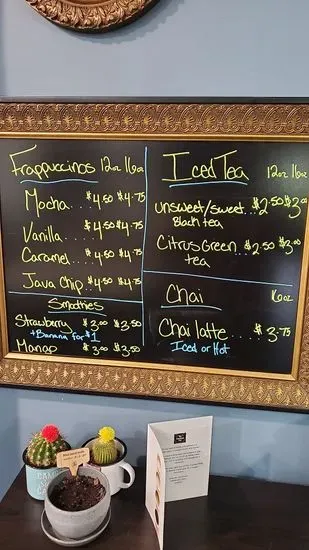 Frappuccinos 12oz 16oz
Mocha... $4.50 $4.75
Vanilla.... $4.50 $4.75
Caramel.. $4.50 $4.75
Java Chip.. $4.50 $4.75
Smoothies
Strawberry $3.00 $3.50
+Banana for $1
Mango $3.00 $3.50
Iced Tea 12oz 16oz
unsweet/sweet... $2.50 $3.00
Black tea
Citrus Green .. $2.50 $3.00
tea
Chai 16oz
Chai latte.... $3.75
Iced or Hot